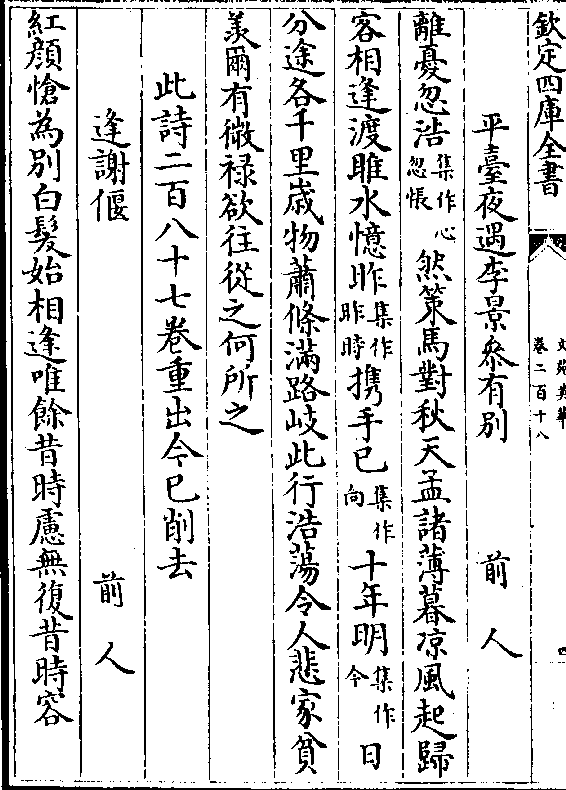 欽定四庫全書
文苑英華
卷二百十八
四
平臺夜遇李景參有別 前人
離憂忽浩集作心忽悵然策馬對秋天孟諸薄暮凉風起歸
客相逢渡睢水憶昨集作昨時携手已集作向十年明集作今日
分途各千里歳物蕭條滿路岐此行浩蕩令人悲家貧
羡爾有微禄欲往從之何所之
此詩二百八十七卷重出今已削去
逢謝偃 前人
紅顔愴為别白髮始相逢唯餘昔時慮無復昔時容